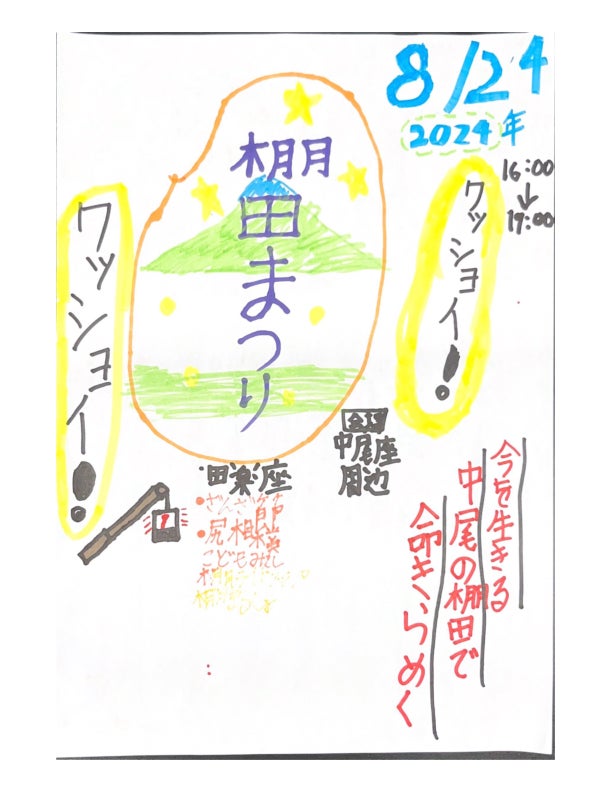 8/24
2024年
16:00
↓
19:00
棚田まつり
ワッショイ!
ワッショイ!
会場
中尾座
周辺
・田楽座
・ざんざ節
・尻相撲
こどもみこし
今を生きる
中尾の棚田で
命きらめく